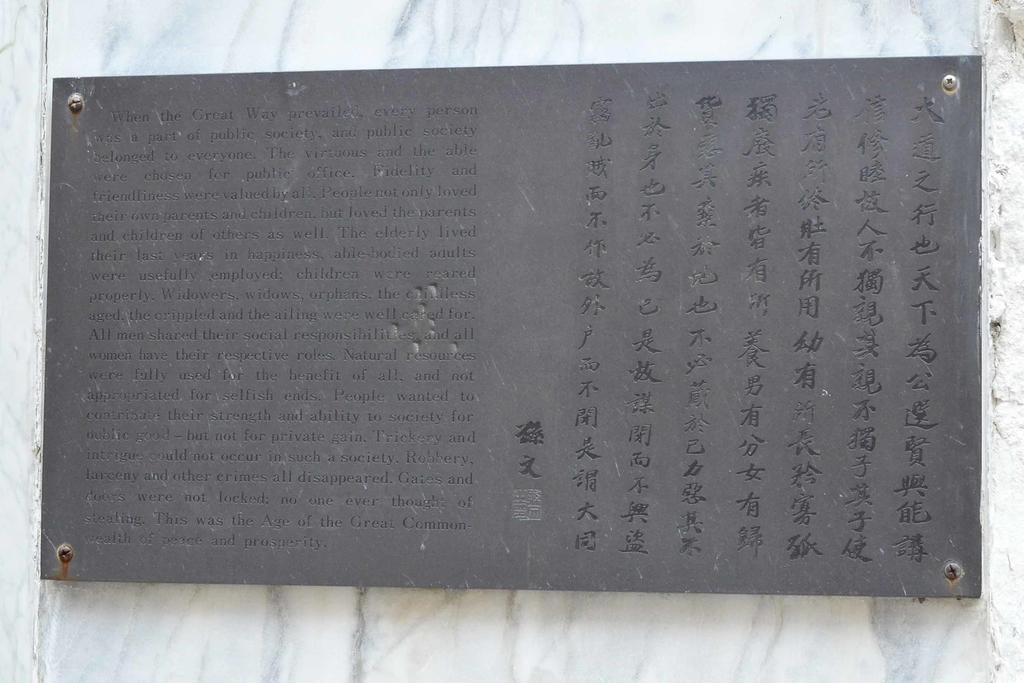 When the Great Way prevailed, every person
was a part of public society, and public society
belonged to everyone. The virtuous and the able
were chosen for public office. Fidelity and
friendliness were valued by all. People not only loved
their own parents and children, but loved the parents
and children of others as well. The elderly lived
their last years in happiness, able-bodied adults
were usefully employed; children were reared
properly. Widowers, widows, orphans, the childless
aged, the crippled and the ailing were well cared for.
All men shared their social responsibilities, and all
women have their respective roles. Natural resources
were fully used for the benefit of all, and not
appropriated for selfish ends. People wanted to
contribute their strength and ability to society for
public good – but not for private gain. Trickery and
intrigue could not occur in such a society. Robbery,
larceny and other crimes all disappeared. Gates and
doors were not locked; no one ever thought of
stealing. This was the Age of the Great Common-
wealth of peace and prosperity.
大道之行也天下為公選賢與能講
信修睦故人不獨親其親不獨子其子使
老有所終壯有所用幼有所長矜寡孤
獨廢疾者皆有所養男有分女有歸
貨惡其棄於地也不必藏於己力惡其不
出於身也不必為己是故謀閉而不興盜
竊亂賊而不作故外戶而不閉是謂大同
孫文